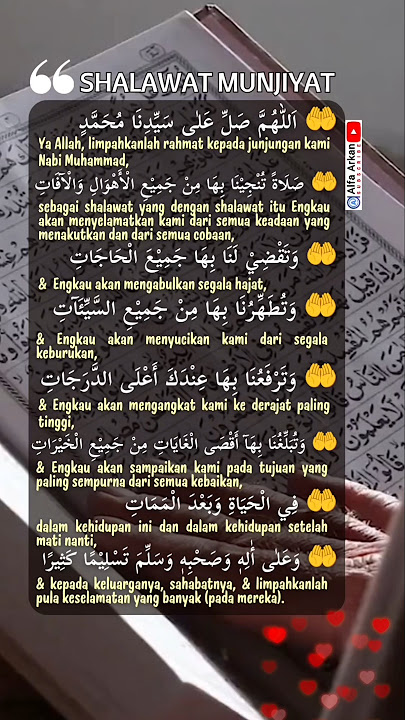 SHALAWAT MUNJIYAT
اَللّٰهُمَّ صَلِّ عَلٰى سَيِّدِنَا مُحَمَّدٍ
Ya Allah, limpahkanlah rahmat kepada junjungan kami
Nabi Muhammad,
صَلَاةً تُنْجِيْنَا بِهَا مِنْ جَمِيْعِ الْأَهْوَالِ وَالْآفَاتِ
sebagai shalawat yang dengan shalawat itu Engkau
akan menyelamatkan kami dari semua keadaan yang
menakutkan dan dari semua cobaan,
وَتَقْضِيْ لَنَا بِهَا جَمِيْعَ الْحَاجَاتِ
& Engkau akan mengabulkan segala hajat,
وَتُطَهِّرُنَا بِهَا مِنْ جَمِيْعِ السَّيِّئَآتِ
& Engkau akan menyucikan kami dari segala
keburukan,
وَتَرْفَعُنَا بِهَا عِنْدَكَ أَعْلَى الدَّرَجَاتِ
& Engkau akan mengangkat kami ke derajat paling
tinggi,
وَتُبَلِّغُنَا بِهَآ أَقْصَى الْغَايَاتِ مِنْ جَمِيْعِ الْخَيْرَاتِ
& Engkau akan sampaikan kami pada tujuan yang
paling sempurna dari semua kebaikan,
فِي الْحَيَاةِ وَبَعْدَ الْمَمَاتِ
dalam kehidupan ini dan dalam kehidupan setelah
mati nanti,
وَعَلٰى أٰلِهٖ وَصَحْبِهٖ وَسَلِّمْ تَسْلِيْمًا كَثِيْرًا
& kepada keluarganya, sahabatnya, & limpahkanlah
pula keselamatan yang banyak (pada mereka).
Alfa Arkan
SUBSCRIBE